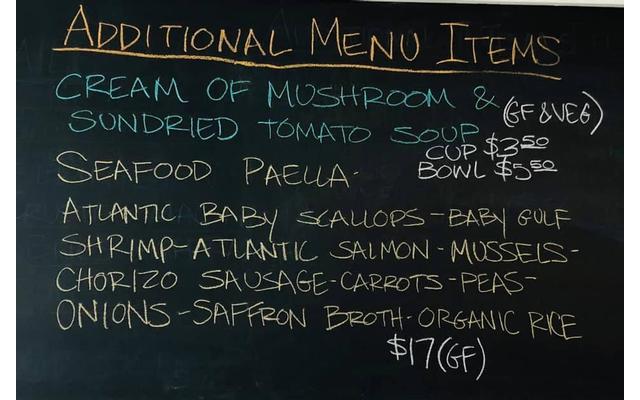 ADDITIONAL MENU ITEMS
CREAM OF MUSHROOM & (GF & VEG)
SUNDRIED TOMATO SOUP
CUP $3.50
BOWL $5.50
SEAFOOD PAELLA-
ATLANTIC BABY SCALLOPS-BABY GULF
SHRIMP-ATLANTIC SALMON-MUSSELS-
CHORIZO SAUSAGE-CARROTS-PEAS-
ONIONS-SAFFRON BROTH-ORGANIC RICE
$17 (GF)